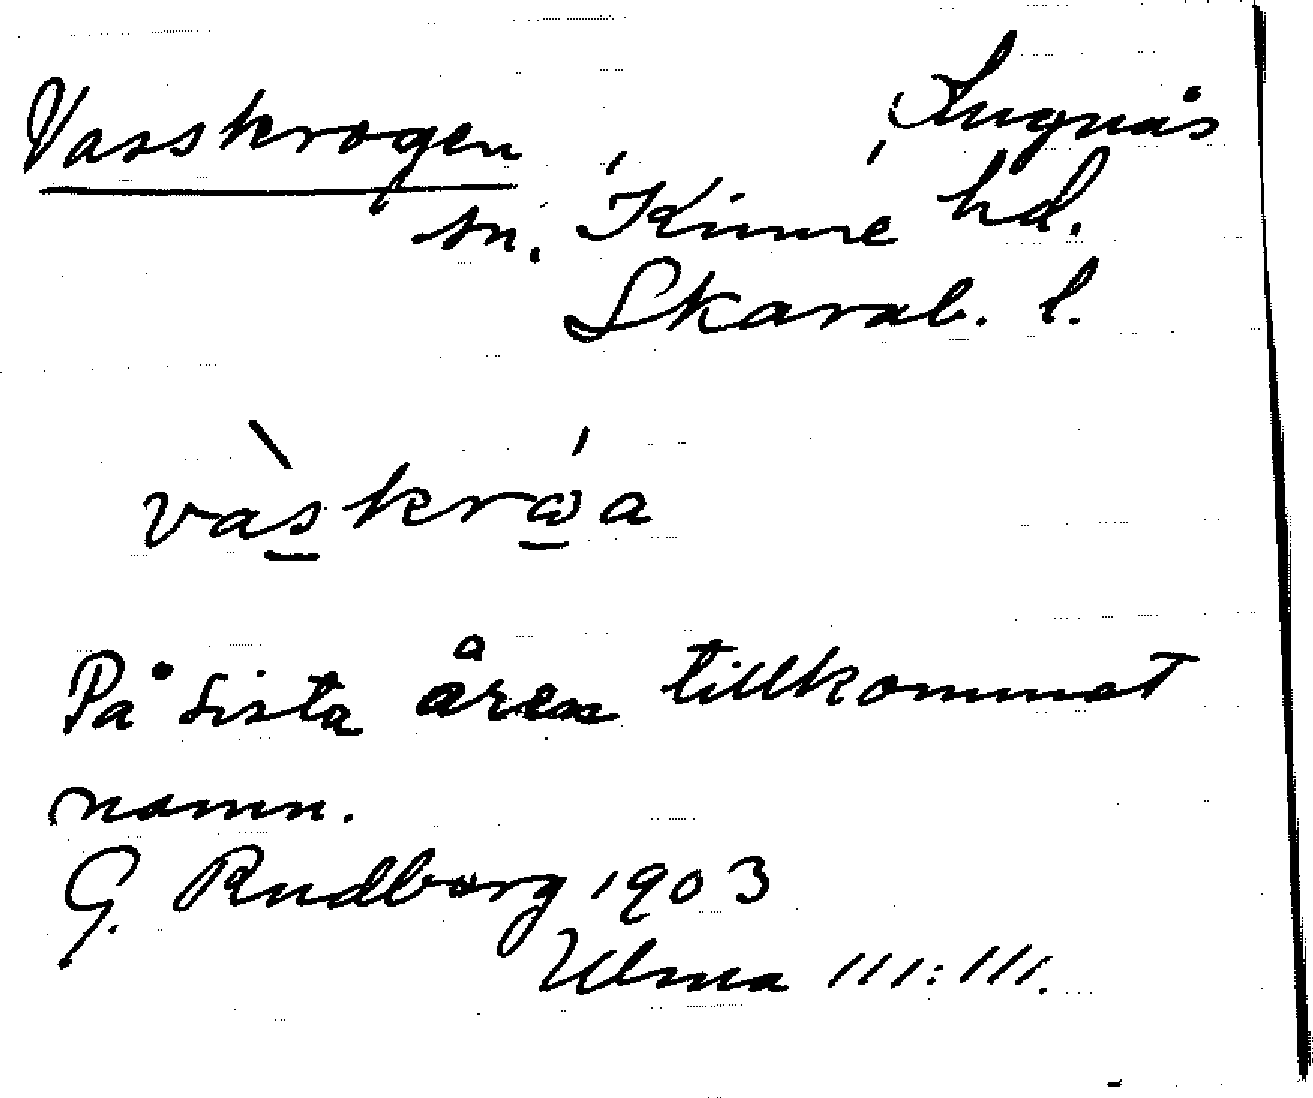 Vasskrogen
Lugnås
sn. Kinne hd.
Skarab. l.
vàskrǻa
På sista åren tillkommet
namn.
G. Rudberg 1903
Ulma 111:111.